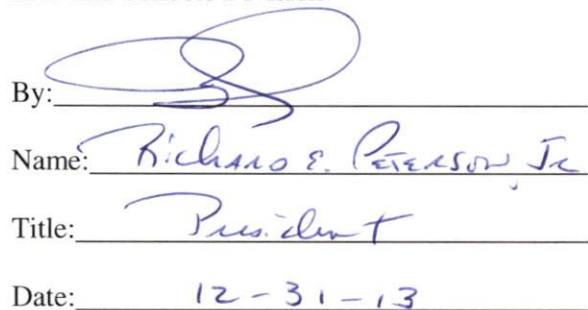 By:
Name: Richard E. Peterson, Jr
Title: President
Date: 12-31-13